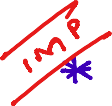 IMP
*